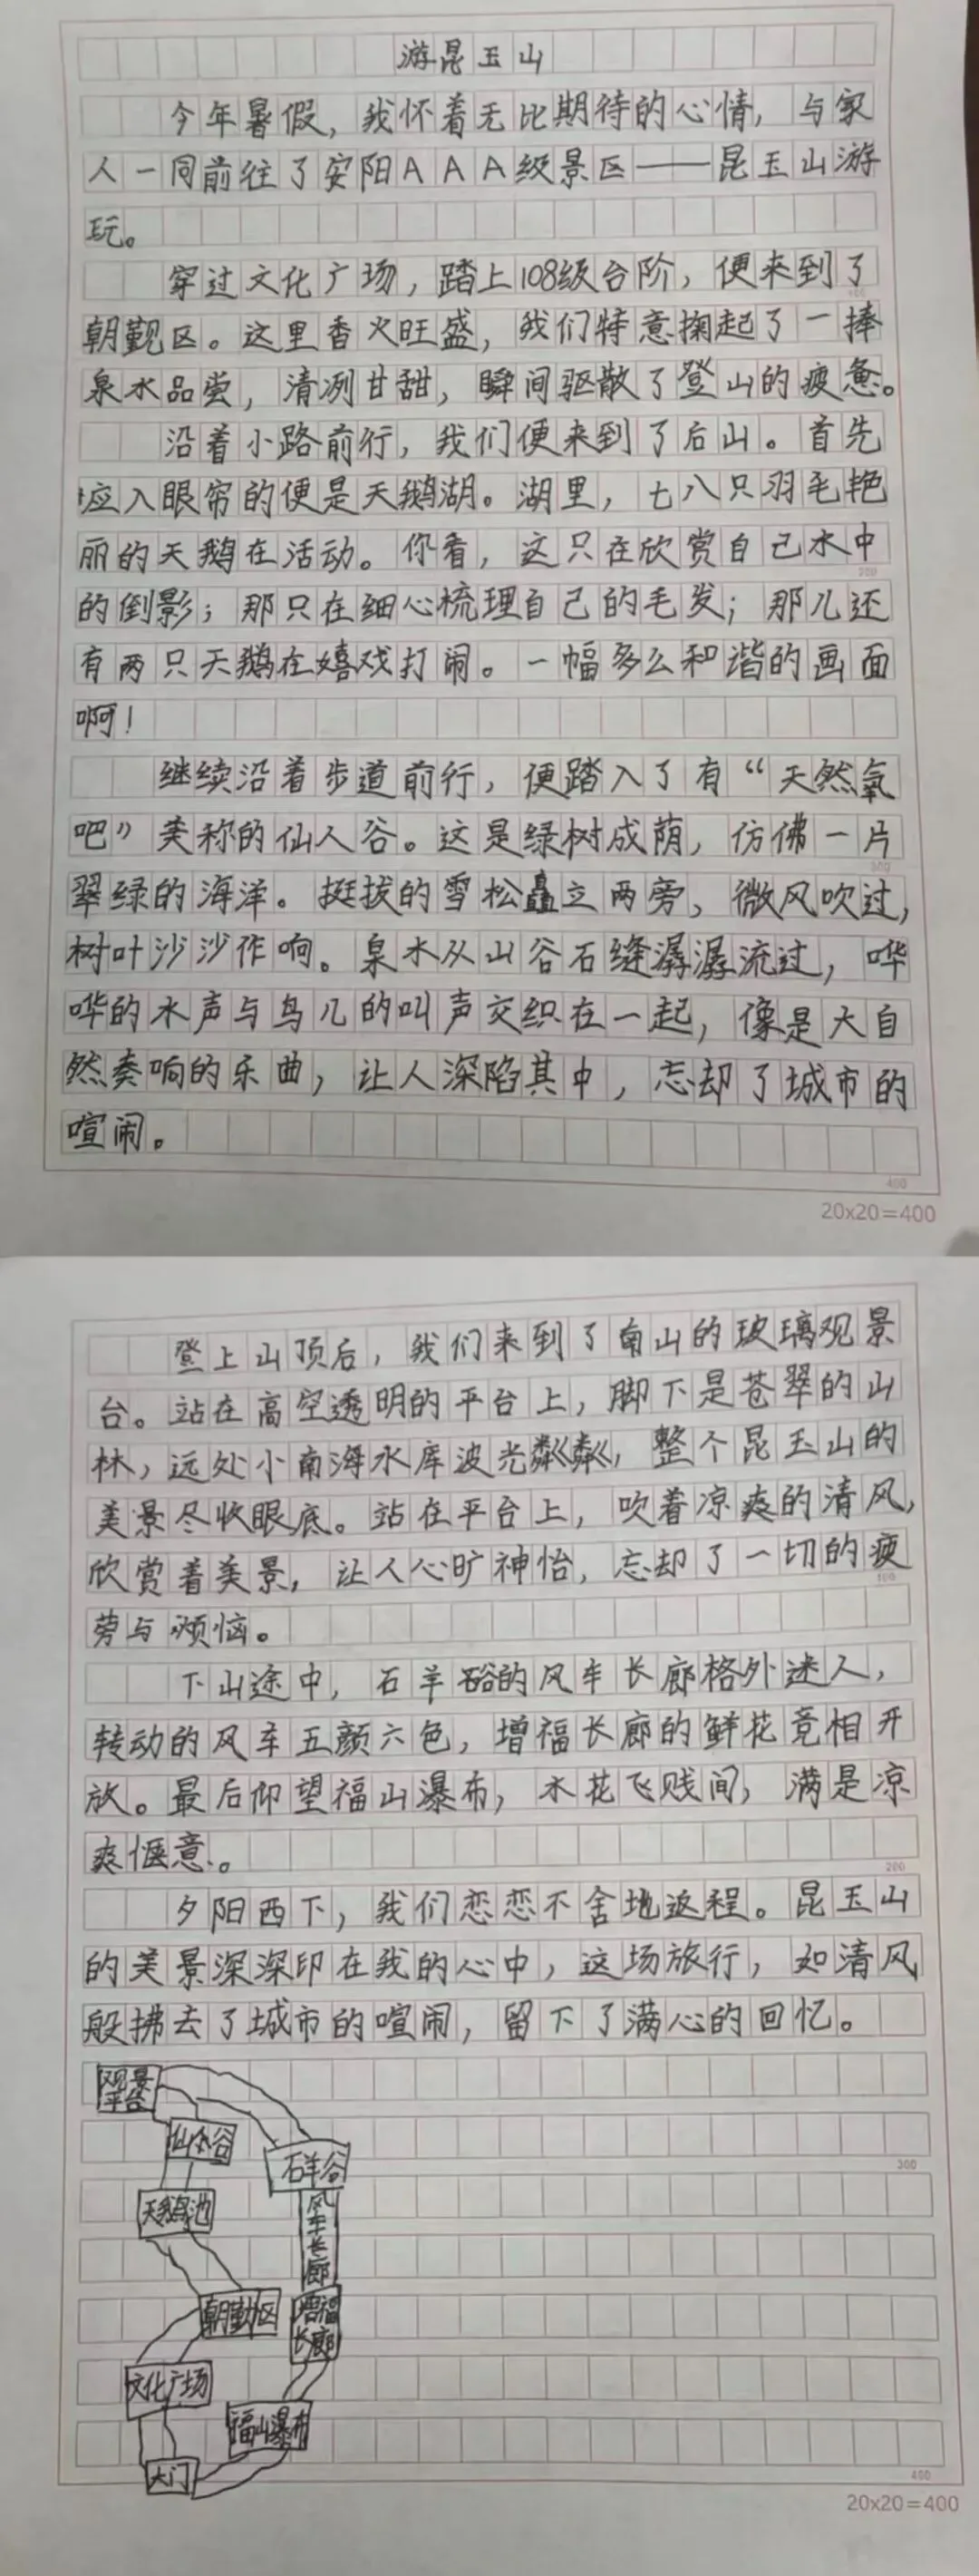 游昆玉山
今年暑假，我怀着无比期待的心情，与家
人一同前往了安阳AAA级景区——昆玉山游
玩。
穿过文化广场，踏上108级台阶，便来到了
朝觐区。这里香火旺盛，我们特意掬起了一捧
泉水品尝，清冽甘甜，瞬间驱散了登山的疲惫。
沿着小路前行，我们便来到了后山。首先
应入眼帘的便是天鹅湖。湖里，七八只羽毛艳
丽的天鹅在活动。你看，这只在欣赏自己水中
的倒影；那只在细心梳理自己的毛发；那儿还
有两只天鹅在嬉戏打闹。一幅多么和谐的画面
啊！
继续沿着步道前行，便踏入了有“天然氧
吧”美称的仙人谷。这是绿树成荫，仿佛一片
翠绿的海洋。挺拔的雪松矗立两旁，微风吹过，
树叶沙沙作响。泉水从山谷石缝潺潺流过，哗
哗的水声与鸟儿的叫声交织在一起，像是大自
然奏响的乐曲，让人深陷其中，忘却了城市的
喧闹。
400
20x20=400
登上山顶后，我们来到了南山的玻璃观景
台。站在高空透明的平台上，脚下是苍翠的山
林，远处小南海水库波光粼粼，整个昆玉山的
美景尽收眼底。站在平台上，吹着凉爽的清风，
欣赏着美景，让人心旷神怡，忘却了一切的疲
100
劳与烦恼。
下山途中，石羊峪的风车长廊格外迷人，
转动的风车五颜六色，增福长廊的鲜花竞相开
放。最后仰望福山瀑布，水花飞贱间，满是凉
爽惬意。
200
夕阳西下，我们恋恋不舍地返程。昆玉山
的美景深深印在我的心中，这场旅行，如清风
般拂去了城市的喧闹，留下了满心的回忆。
观景
平台
仙人谷
300
石羊谷
天鹅池
风车长廊
朝勤区
增福
长廊
文化广场
福山瀑布
大门
400
20x20=400